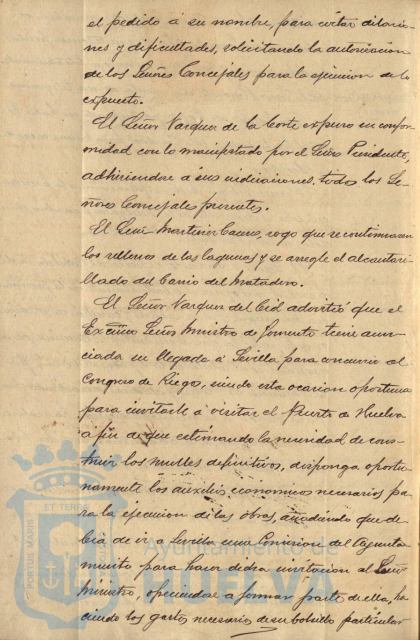 el pedido á su nombre, para evitar dilacio-
nes y dificultades, solicitando la autorizacion
de los Señores Concejales para la ejecucion de lo
expuesto.
El Señor Vazquez de la Corte expuso su confor-
midad con lo manifestado por el Señor Presidente,
adhiriendose á sus indicaciones, todos los Se-
ñores Concejales presentes.
El Señor Martinez Cacers, rogo que se continuaran
los rellenos de las lagunas y se arregle el alcantari-
llado del Barrio del Matadero.
El Señor Vazquez del Cid advirtió que el
Excmo Señor Ministro de Fomento tiene anun-
ciada su llegada á Sevilla para concurrir al
Congreso de Riego, siendo esta ocasion oportuna
para invitarle á visitar el Puerto de Huelva
á fin de que estimando la necesidad de cons-
truir los muelles definitivos, disponga oportu-
namente los auxilios económicos necesarios pa-
ra la ejecucion de las obras, añadiendo que de-
bía de ir á Sevilla una Comision del Ayunta-
miento para hacer dicha invitacion al Señor
Ministro, ofreciendose a formar parte de ella, ha-
ciendo los gastos necesarios de su bolsillo particular
PORTUS MARIS ET TERRAE
Ayuntamiento de
HUELVA